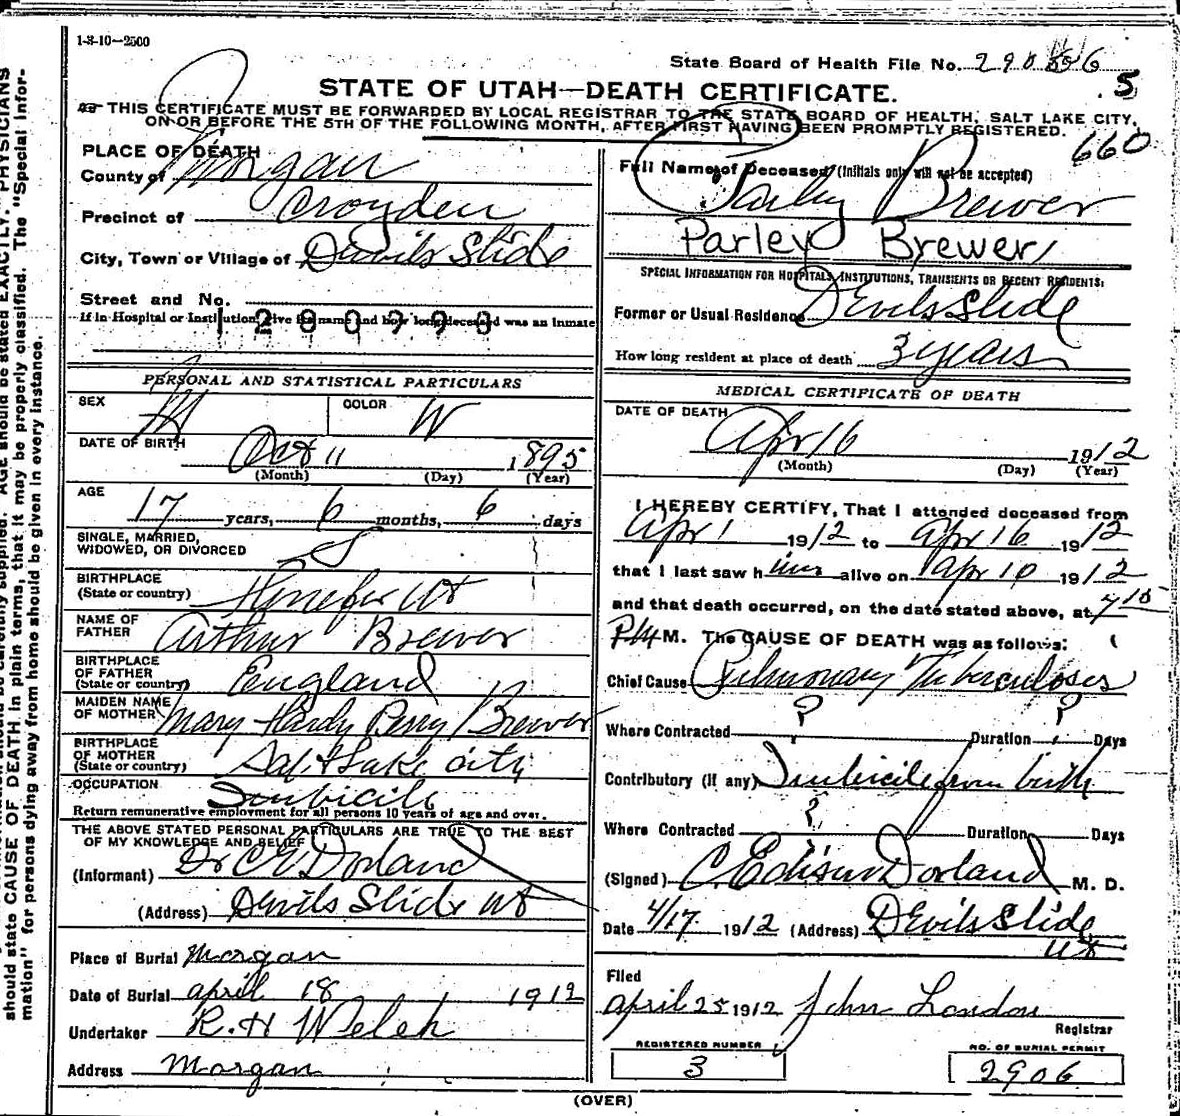 1-3-10—2500
State Board of Health File No.
STATE OF UTAH—DEATH CERTIFICATE.
5
THIS CERTIFICATE MUST BE FORWARDED BY LOCAL REGISTRAR TO THE STATE BOARD OF HEALTH, SALT LAKE CITY,
ON OR BEFORE THE 5TH OF THE FOLLOWING MONTH, AFTER FIRST HAVING BEEN PROMPTLY REGISTERED.
660
PLACE OF DEATH
County of Morgan
Precinct of Croyden
City, Town or Village of Devils Slide
Street and No.
If in Hospital or Institution, give its name and how long deceased was an inmate
1280793
Full Name of Deceased (Initials only will not be accepted)
Parley Brewer
Parley Brewer
SPECIAL INFORMATION FOR HOSPITALS, INSTITUTIONS, TRANSIENTS OR RECENT RESIDENTS:
Former or Usual Residence Devils Slide
How long resident at place of death 3 years
PERSONAL AND STATISTICAL PARTICULARS
SEX M COLOR W
DATE OF BIRTH Oct 11 1895
(Month) (Day) (Year)
AGE
17 years, 6 months, 6 days
SINGLE, MARRIED,
WIDOWED, OR DIVORCED S
BIRTHPLACE
(State or country) Henefer Ut
NAME OF
FATHER Arthur Brewer
BIRTHPLACE
OF FATHER
(State or country) England
MAIDEN NAME
OF MOTHER Mary Hardy Perry Brewer
BIRTHPLACE
OF MOTHER
(State or country) Salt Lake City
OCCUPATION Imbicile
Return remunerative employment for all persons 10 years of age and over.
THE ABOVE STATED PERSONAL PARTICULARS ARE TRUE TO THE BEST
OF MY KNOWLEDGE AND BELIEF
(Informant) Dr C E Dorland
(Address) Devils Slide Ut
Place of Burial Morgan
Date of Burial april 18 1912
Undertaker R. H Welch
Address Morgan
MEDICAL CERTIFICATE OF DEATH
DATE OF DEATH
Apr 16 1912
(Month) (Day) (Year)
I HEREBY CERTIFY, That I attended deceased from
Apr 1 1912 to Apr 16 1912
that I last saw him alive on Apr 10 1912
and that death occurred, on the date stated above, at 7 15
P.M. M. The CAUSE OF DEATH was as follows:
Chief Cause Pulmonary Tuberculosis
Where Contracted ? Duration ? Days
Contributory (if any) Imbicile from birth
Where Contracted ? Duration Days
(Signed) C. Edison Dorland M. D.
Date 4/17 1912 (Address) Devils Slide
Ut
Filed
april 25 1912 John London
Registrar
REGISTERED NUMBER
3
NO. OF BURIAL PERMIT
2906
(OVER)
should state CAUSE OF DEATH in plain terms, that it may be properly classified. The "Special Infor-
mation" for persons dying away from home should be given in every instance.